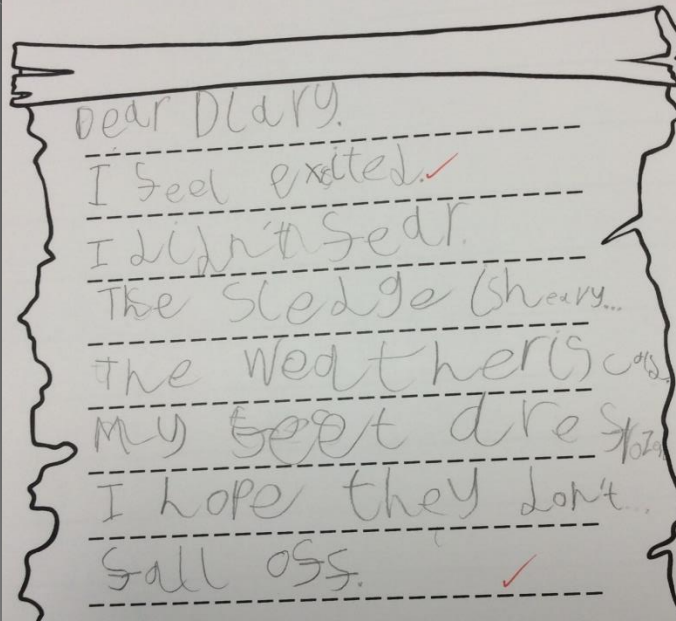 Dear Diary.
I feel exited.
I didn't fear.
The sledge is heavy...
The weather is cold.
My feet are frozen
I hope they don't...
fall off.